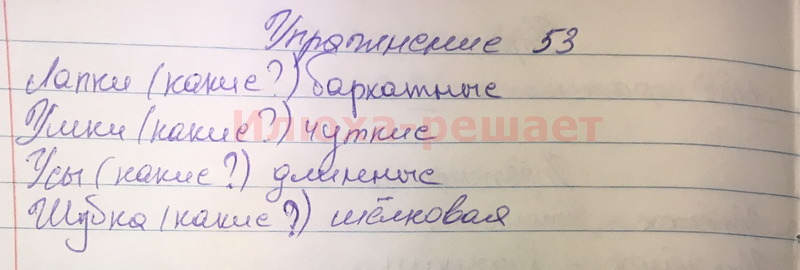 Упражнение 53
Лапки (какие?) бархатные
Ушки (какие?) чуткие
Илюха-решает
Усы (какие?) длинные
Шубка (какие?) шёлковая